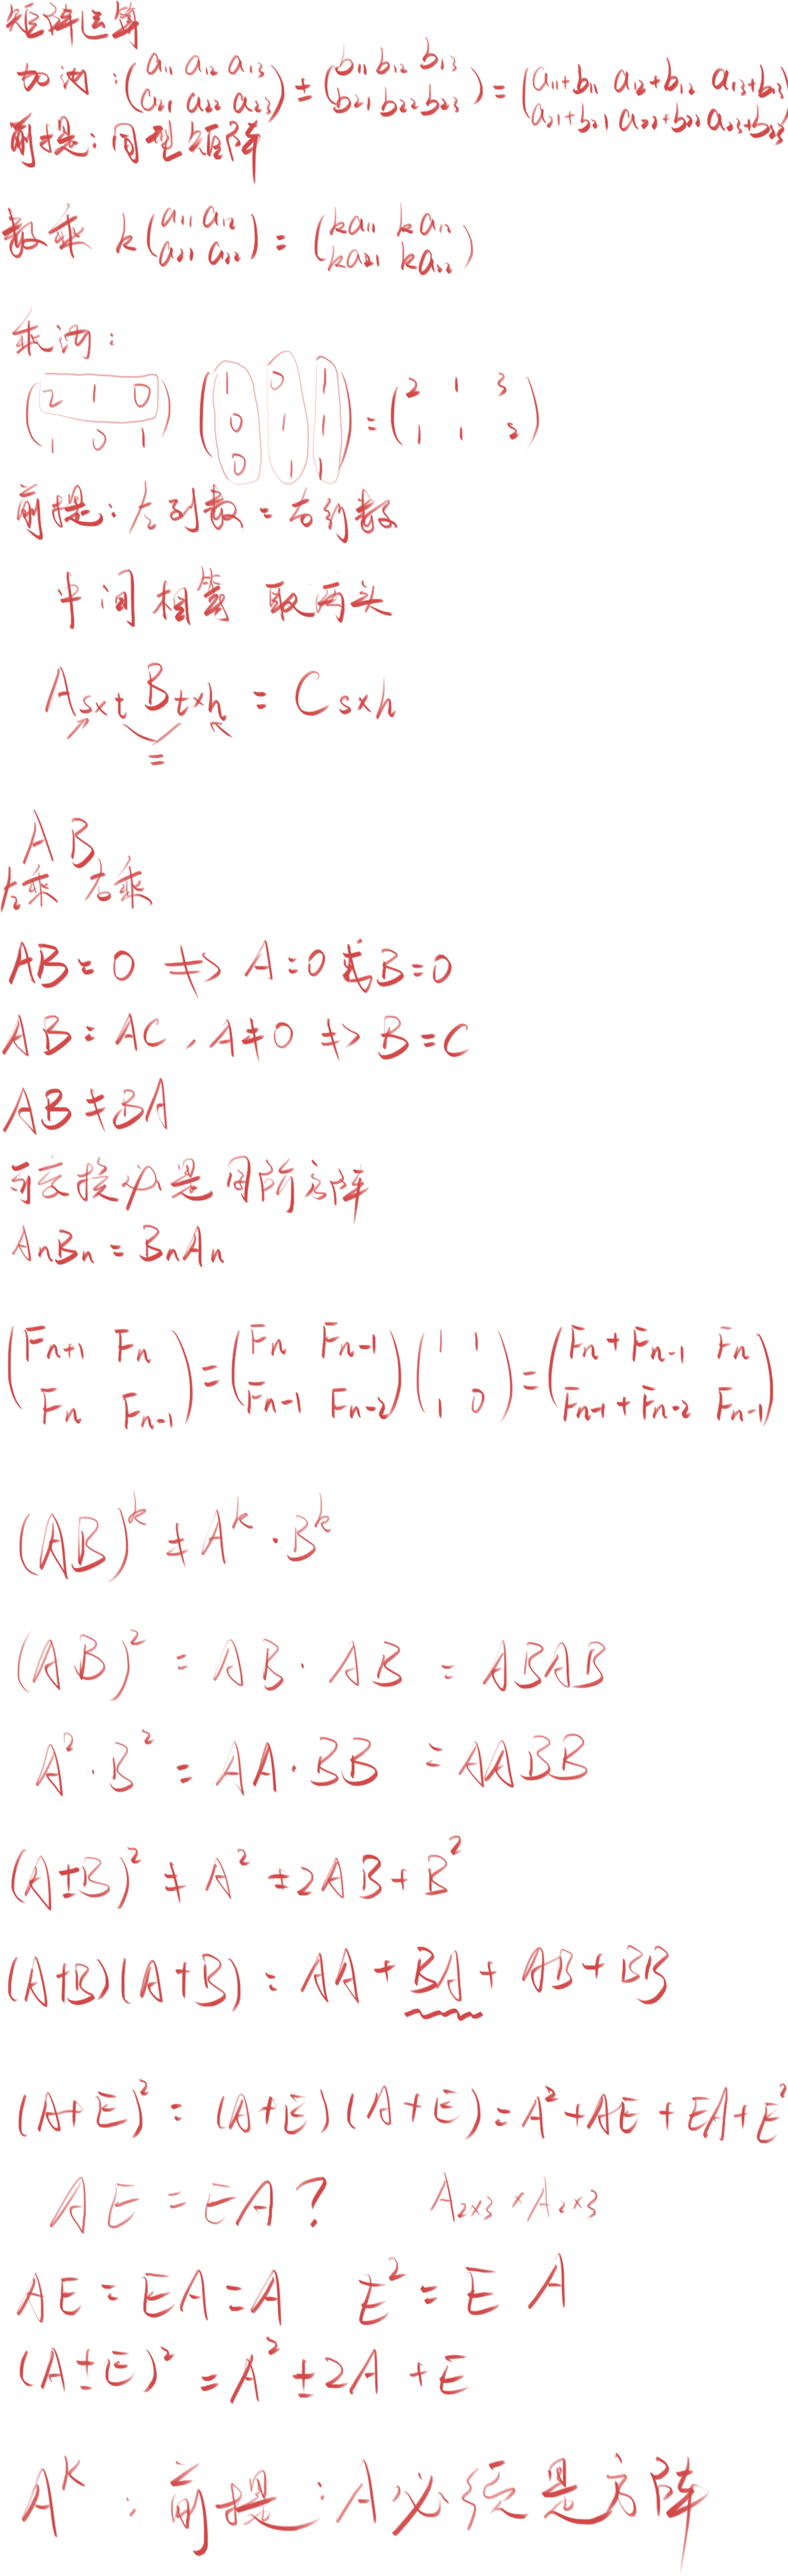 矩阵运算
加法：(a₁₁ a₁₂ a₁₃ ; a₂₁ a₂₂ a₂₃) ± (b₁₁ b₁₂ b₁₃ ; b₂₁ b₂₂ b₂₃) = (a₁₁+b₁₁ a₁₂+b₁₂ a₁₃+b₁₃ ; a₂₁+b₂₁ a₂₂+b₂₂ a₂₃+b₂₃)
前提：同型矩阵
数乘 k(a₁₁ a₁₂ ; a₂₁ a₂₂) = (ka₁₁ ka₁₂ ; ka₂₁ ka₂₂)
乘法：
(2 1 0 ; 1 0 1) (1 0 1 ; 0 1 1 ; 0 1 1) = (2 1 3 ; 1 1 2)
前提：左列数 = 右行数
中间相等 取两头
A s×t B t×n = C s×n
=
A B
左乘 右乘
AB = 0 ≠> A = 0 或 B = 0
AB = AC , A ≠ 0 ≠> B = C
AB ≠ BA
可交换必是同阶方阵
AnBn = BnAn
(Fn+1 Fn ; Fn Fn-1) = (Fn Fn-1 ; Fn-1 Fn-2) (1 1 ; 1 0) = (Fn + Fn-1 Fn ; Fn-1 + Fn-2 Fn-1)
(AB)ᵏ ≠ Aᵏ · Bᵏ
(AB)² = AB · AB = ABAB
A² · B² = AA · BB = AABB
(A±B)² ≠ A² ± 2AB + B²
(A+B)(A+B) = AA + BA + AB + BB
(A+E)² = (A+E)(A+E) = A² + AE + EA + E²
AE = EA ? A₂ₓ₃ × A₂ₓ₃
AE = EA = A E² = E A
(A±E)² = A² ± 2A + E
Aᴷ : 前提 : A必须是方阵